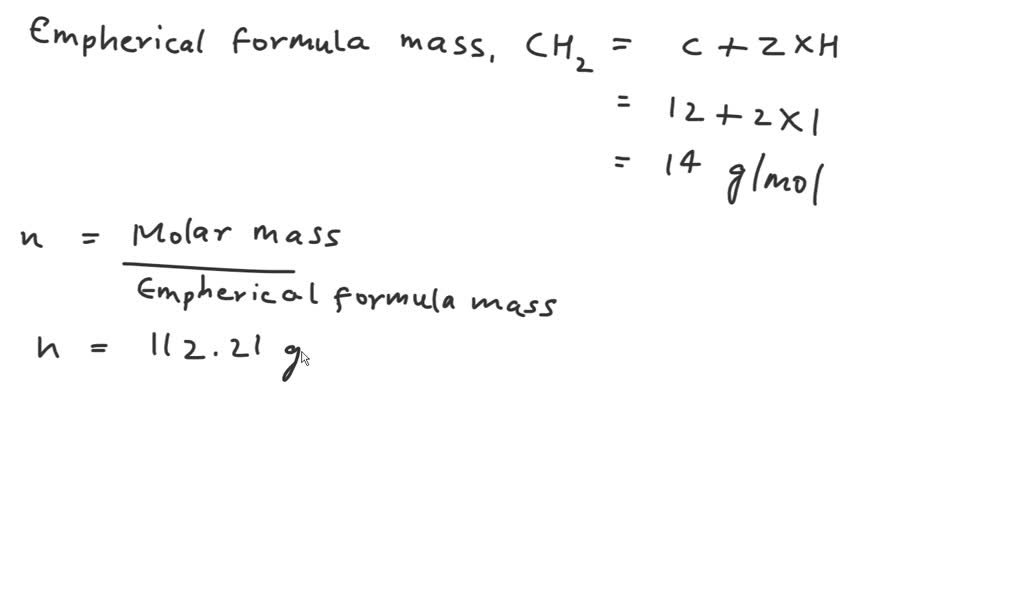 Empherical formula mass, CH2 = C + 2 × H
= 12 + 2 × 1
= 14 g/mol
n = Molar mass
Empherical formula mass
n = 112.21 g